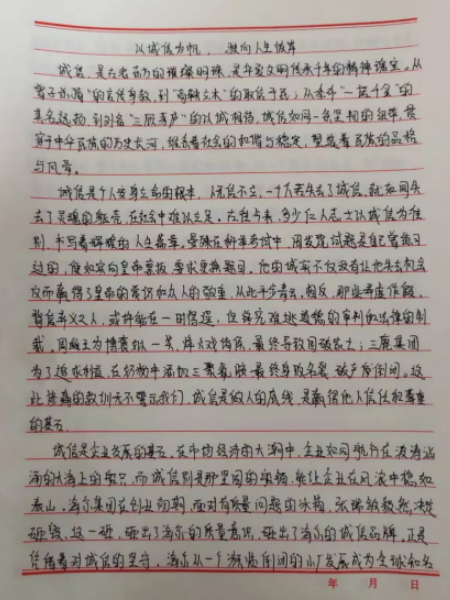 以诚信为帆，驶向人生彼岸
诚信，是古老东方的璀璨明珠，是华夏文明传承千年的精神瑰宝。从
曾子杀猪"的言传身教，到"商鞅立木"的取信于民；从季布"一诺千金"的
美名远扬，到刘备"三顾茅庐"的以诚相待，诚信如同一条坚韧的纽带，贯
穿于中华民族的历史长河，维系着社会的和谐与稳定，塑造着民族的品格
与风骨。
诚信是个人安身立命的根本，人无信不立，一个人若失去了诚信，就如同失
去了灵魂的躯壳，在社会中难以立足。古往今来，多少仁人志士以诚信为准
则，书写着辉煌的人生篇章。晏殊在科举考试中，因发现试题是自己曾练习
过的，便如实向皇帝禀报，要求更换题目。他的诚实不仅没有让他失去机会
反而赢得了皇帝的赏识和众人的敬重，从此平步青云。相反，那些弄虚作假、
背信弃义之人，或许能在一时得逞，但终究难逃道德的审判和法律的制
裁。周幽王为博褒姒一笑，烽火戏诸侯，最终导致国破家亡；三鹿集团
为了追求利益，在奶粉中添加三聚氰胺，最终身败名裂，破产倒闭。这
些惨痛的教训无不警示我们，诚信是做人的底线，是赢得他人信任和尊重
的基石。
诚信是企业发展的基石。在市场经济的大潮中，企业如同航行在波涛汹
涌的大海上的船只，而诚信则是那坚固的船锚，能让企业在风浪中稳如
泰山。海尔集团在创业初期，面对有质量问题的冰箱，张瑞敏毅然决定
砸毁，这一砸，砸出了海尔的质量意识，砸出了海尔的诚信品牌。正是
凭借着对诚信的坚守，海尔从一个濒临倒闭的小厂发展成为全球知名
年 月 日